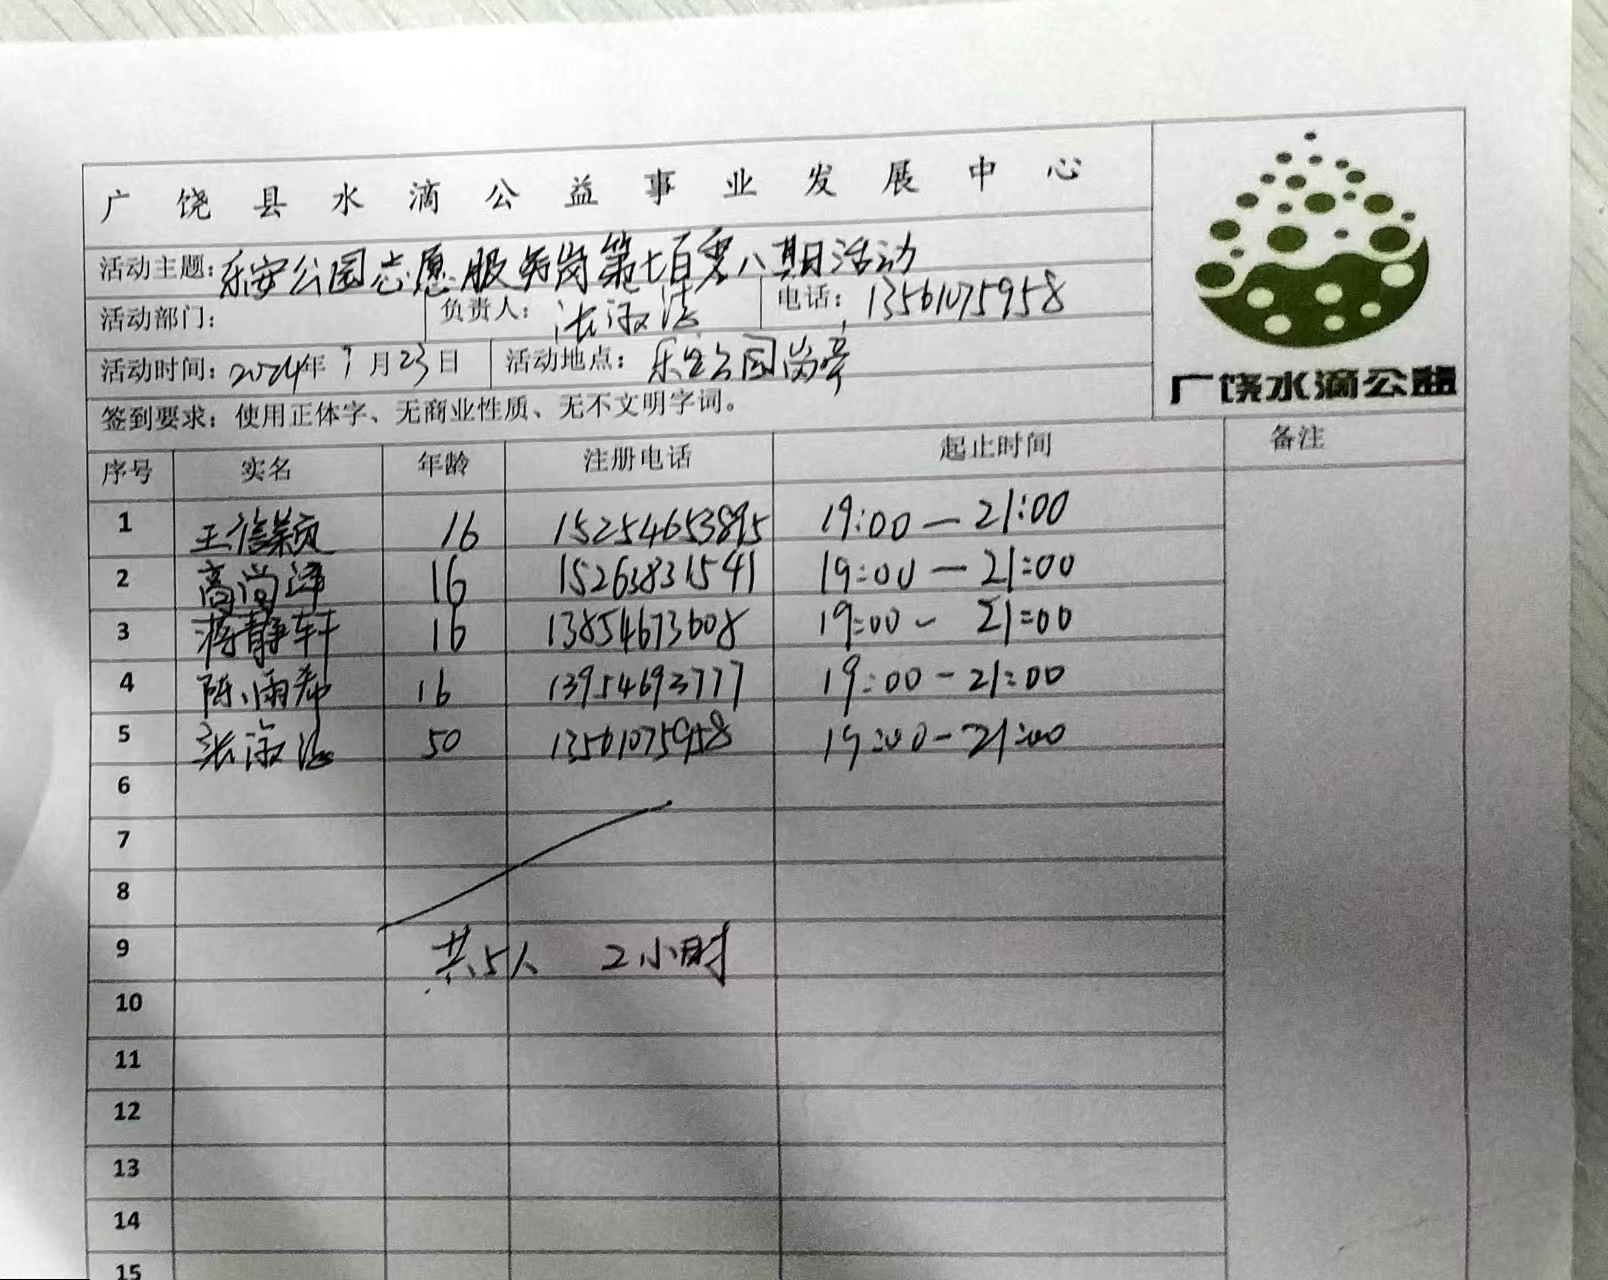 广饶县水滴公益事业发展中心
活动主题：乐安公园志愿服务岗第七百零八期活动
活动部门： 负责人：张淑洁 电话：13561075958
活动时间：2024年7月23日 活动地点：乐安公园岗亭
签到要求：使用正体字、无商业性质、无不文明字词。
广饶水滴公益
序号 实名 年龄 注册电话 起止时间 备注
1 王信颖 16 15254653895 19:00—21:00
2 高尚泽 16 15263831541 19:00—21:00
3 蒋静轩 16 13854673608 19:00-21:00
4 陈雨希 16 13954693777 19:00-21:00
5 张淑洁 50 13561075958 19:00-21:00
6
7
8
9 共5人 2小时
10
11
12
13
14
15